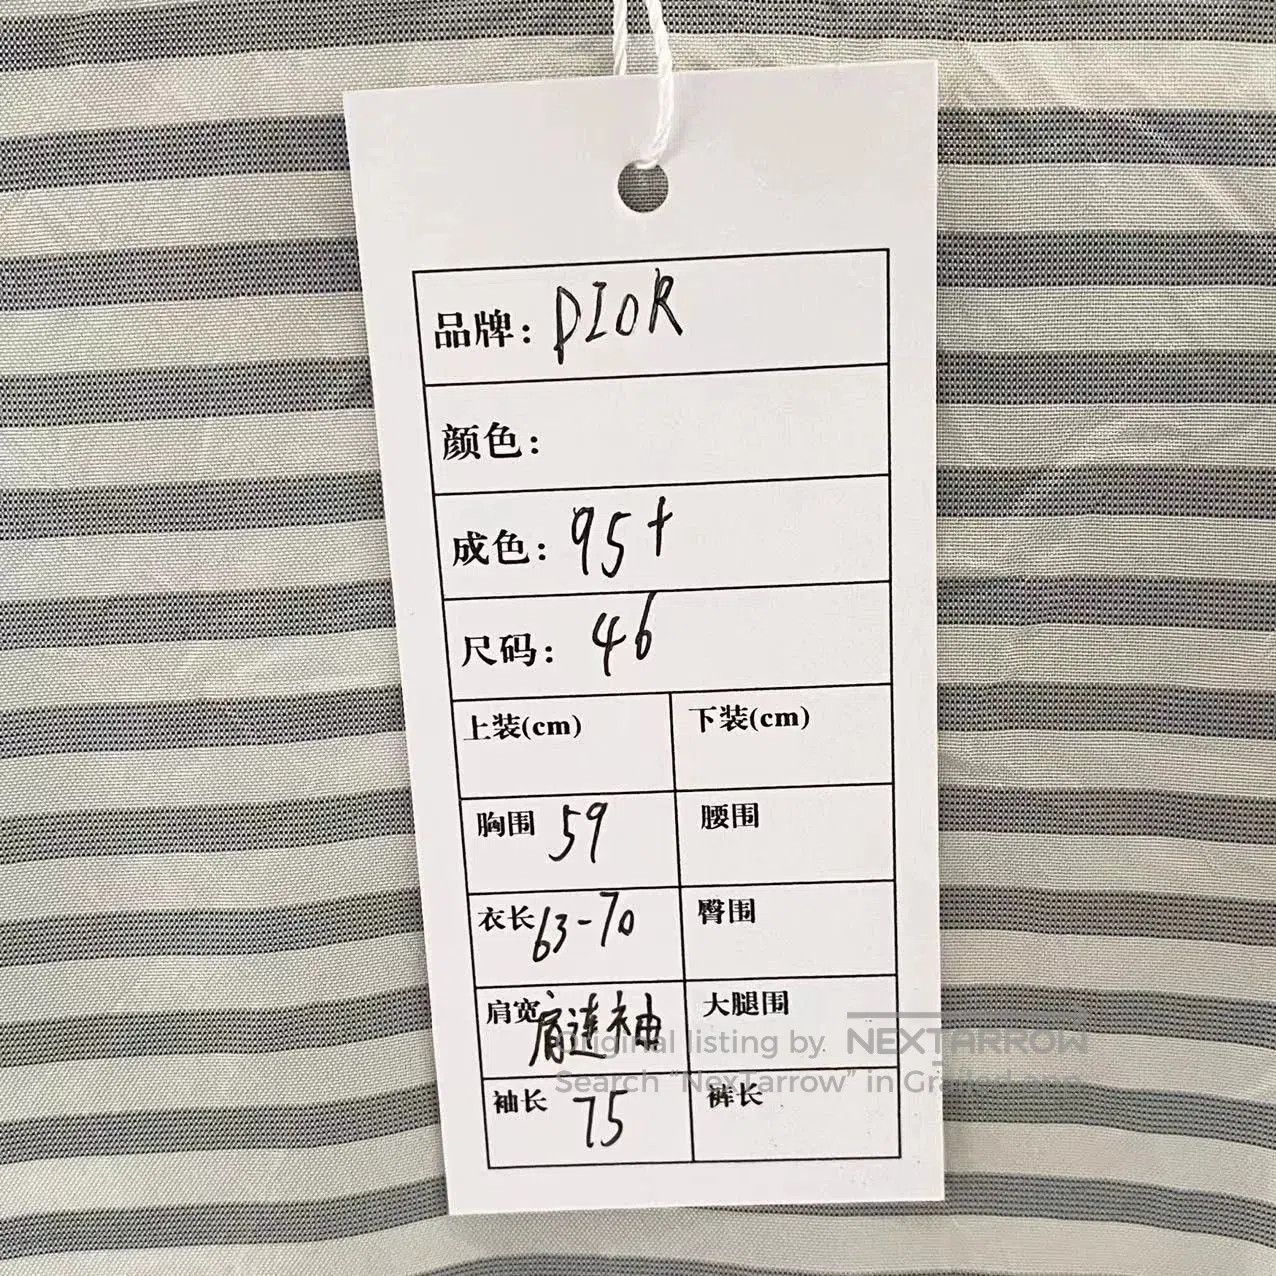 品牌: DIOR
颜色:
成色: 95+
尺码: 46
上装(cm) 下装(cm)
胸围 59 腰围
衣长 63-70 臀围
肩宽 肩连袖 大腿围
Original listing by. NEXTARROW
Search "NexTarrow" in Grailed and
袖长 75 裤长